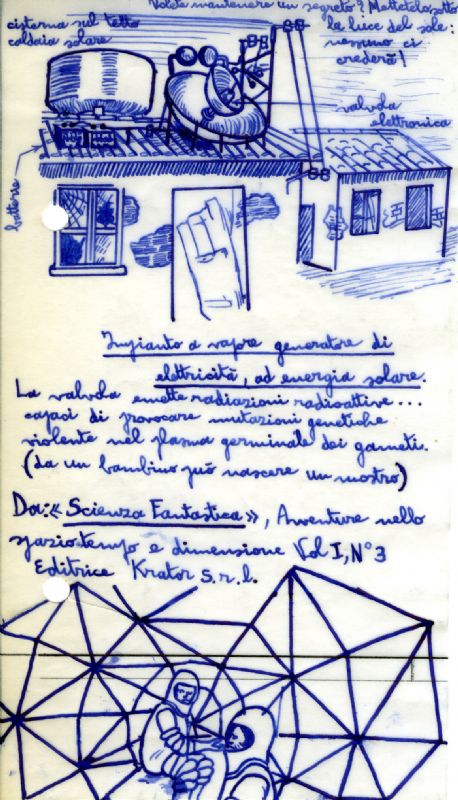 Volete mantenere un segreto? Mettetelo sotto
la luce del sole:
nessuno ci
crederà!
cisterna sul tetto
caldaia solare
valvola
elettronica
batterie
Impianto a vapore generatore di
elettricità, ad energia solare.
La valvola emette radiazioni radioattive...
capaci di provocare mutazioni genetiche
violente nel plasma germinale dei gameti.
(da un bambino può nascere un mostro)
Da: «Scienza Fantastica», Avventure nello
spazio tempo e dimensione Vol I, N°3
Editrice Krator S.r.l.